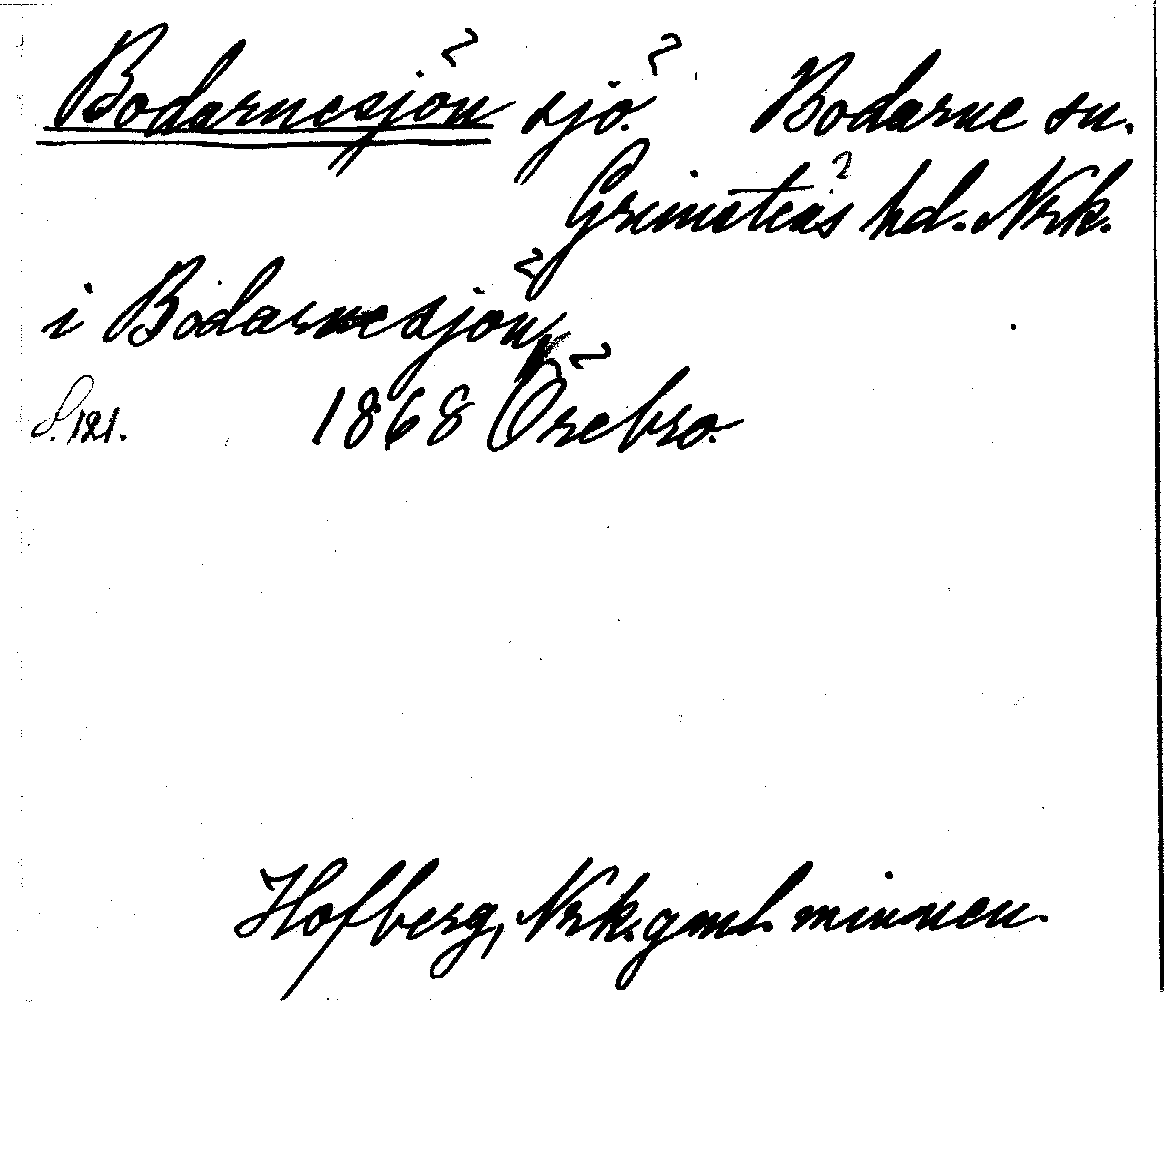 Bodarnesjön sjö. Bodarne sn.
Grimstens hd. Nrk.
i Bodarnesjön
S. 121. 1868 Örebro.
Hofberg, Nrk. gml. minnen.